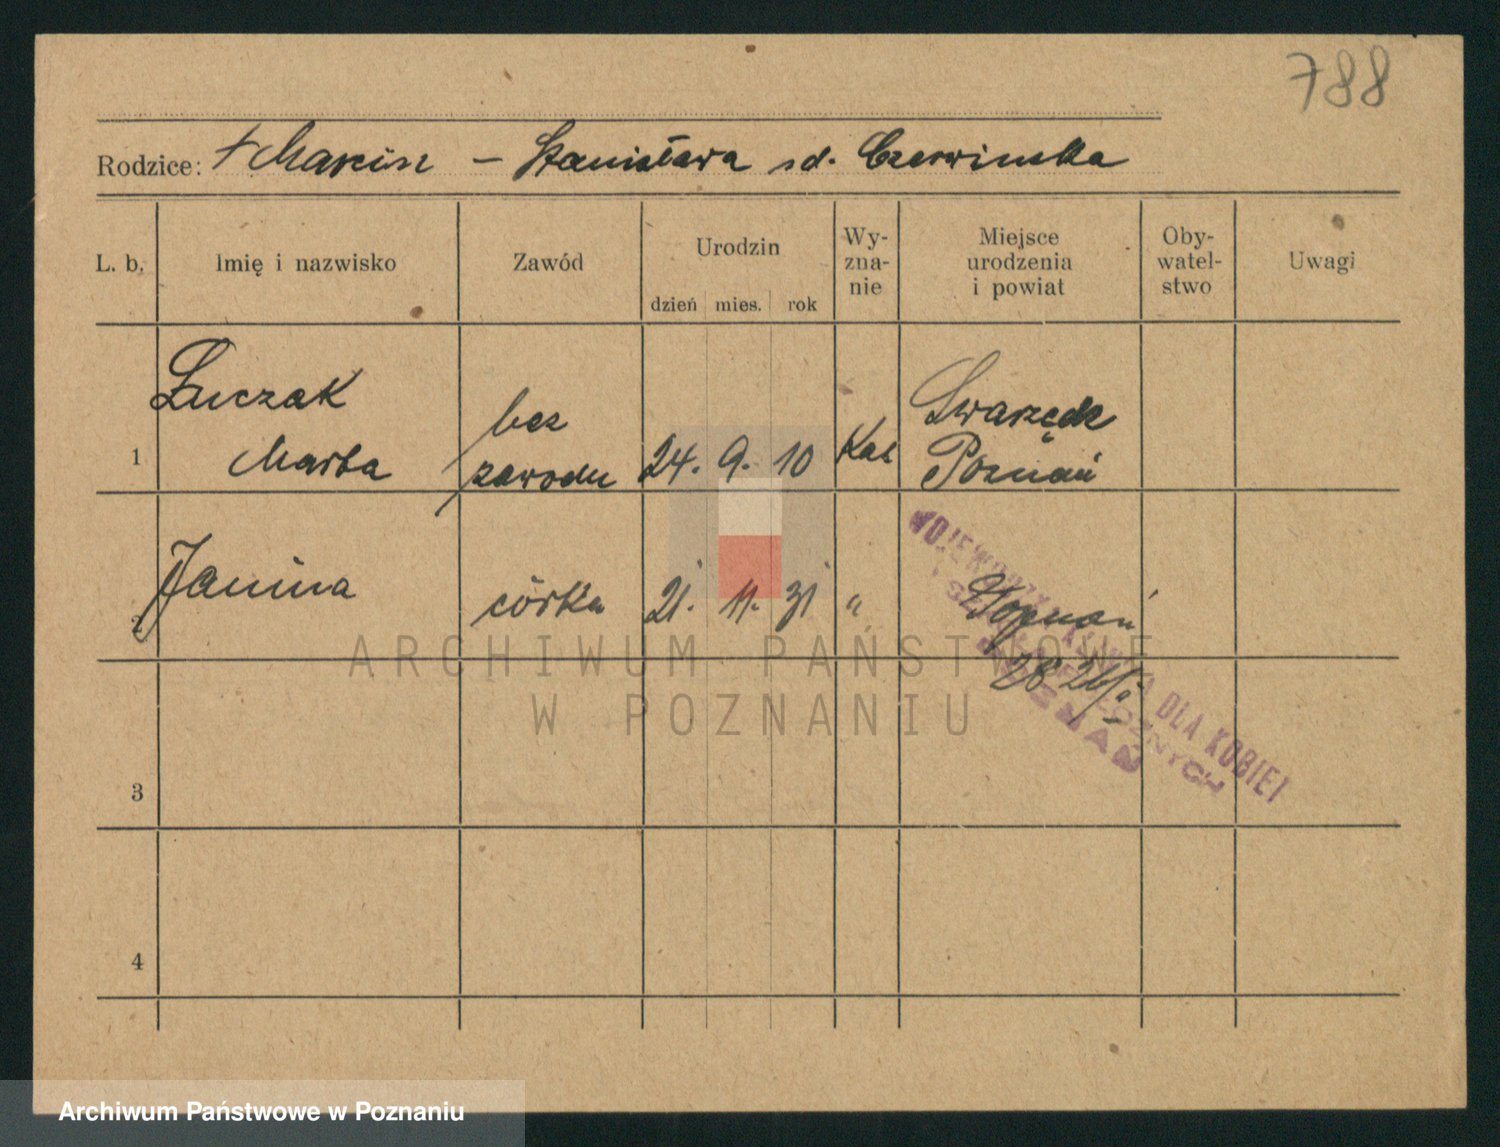 788
Rodzice: + Marcin – Stanisława zd. Czerwińska
L. b.
Imię i nazwisko
Zawód
Urodzin
dzień mies. rok
Wy-
zna-
nie
Miejsce
urodzenia
i powiat
Oby-
watel-
stwo
Uwagi
1
Łuczak
Marta
bez
zawodu
24. 9. 10
Kat
Swarzędz
Poznań
2
Janina
córka
21. 11. 31
"
Poznań
WOJEWÓDZKA DLA KOBIET
POZNAŃ
3
4
ARCHIWUM PAŃSTWOWE
W POZNANIU
Archiwum Państwowe w Poznaniu